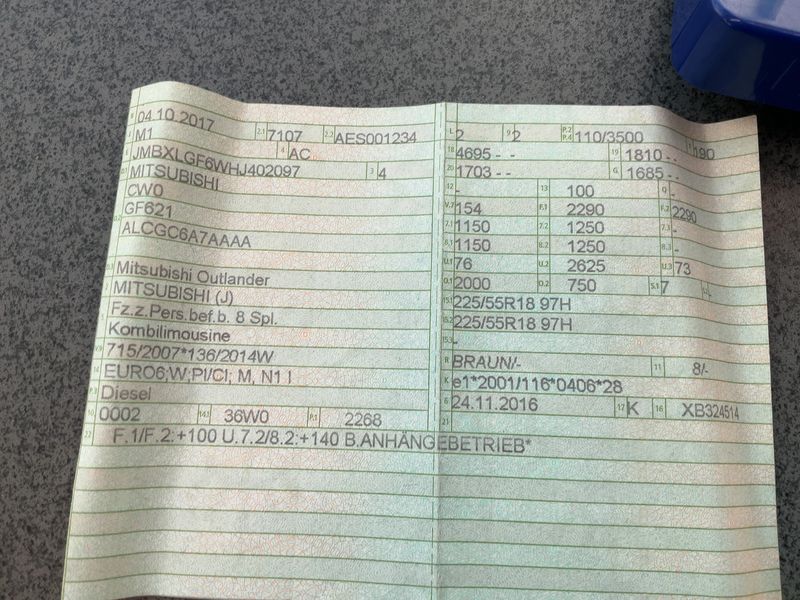 B 04.10.2017 2.1 7107 2.2 AES001234
J M1 4 AC
E JMBXLGF6WHJ402097 3 4
D.1 MITSUBISHI
CW0
D.2 GF621
ALCGC6A7AAAA
D.3 Mitsubishi Outlander
2 MITSUBISHI (J)
Fz.z.Pers.bef.b. 8 Spl.
Kombilimousine
V.9 715/2007*136/2014W
14 EURO6;W;PI/CI; M, N1 I
P.3 Diesel
10 0002 14.1 36W0 P.1 2268
22 F.1/F.2:+100 U.7.2/8.2:+140 B.ANHÄNGEBETRIEB*
L 2 9 2 P.2 P.4 110/3500 T 190
18 4695 - - 19 1810 - -
20 1703 - - G 1685 - -
12 - 13 100 Q -
V.7 154 F.1 2290 F.2 2290
7.1 1150 7.2 1250 7.3 -
8.1 1150 8.2 1250 8.3 -
U.1 76 U.2 2625 U.3 73
O.1 2000 O.2 750 S.1 7
15.1 225/55R18 97H
15.2 225/55R18 97H
15.3 -
R BRAUN/- 11 8/-
K e1*2001/116*0406*28
6 24.11.2016 17 K 16 XB324514
21